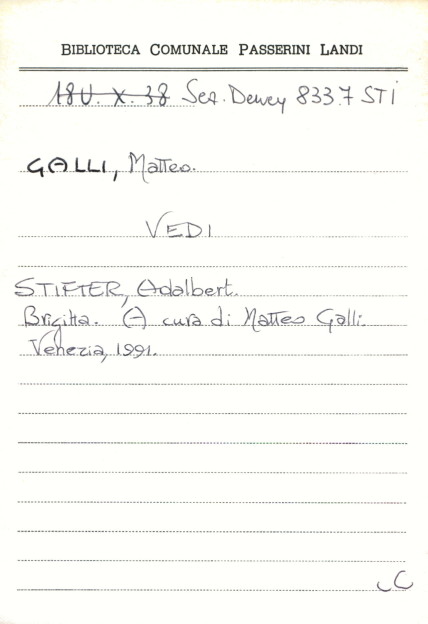 BIBLIOTECA COMUNALE PASSERINI LANDI
18U. X. 38 Sez. Dewey 833.7 STI
GALLI, Matteo.
VEDI
STIFTER, Adalbert.
Brigitta. A cura di Matteo Galli.
Venezia, 1991.